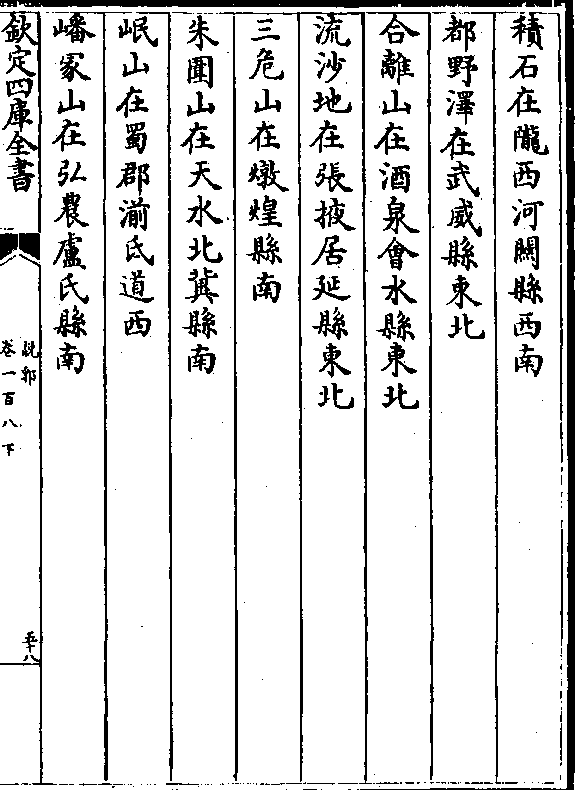 積石在隴西河關縣西南
都野澤在武威縣東北
合離山在酒泉會水縣東北
流沙地在張掖居延縣東北
三危山在燉煌縣南
朱圉山在天水北冀縣南
岷山在蜀郡湔氐道西
嶓冢山在弘農盧氏縣南
欽定四庫全書
說郛
卷一百八下
五十八